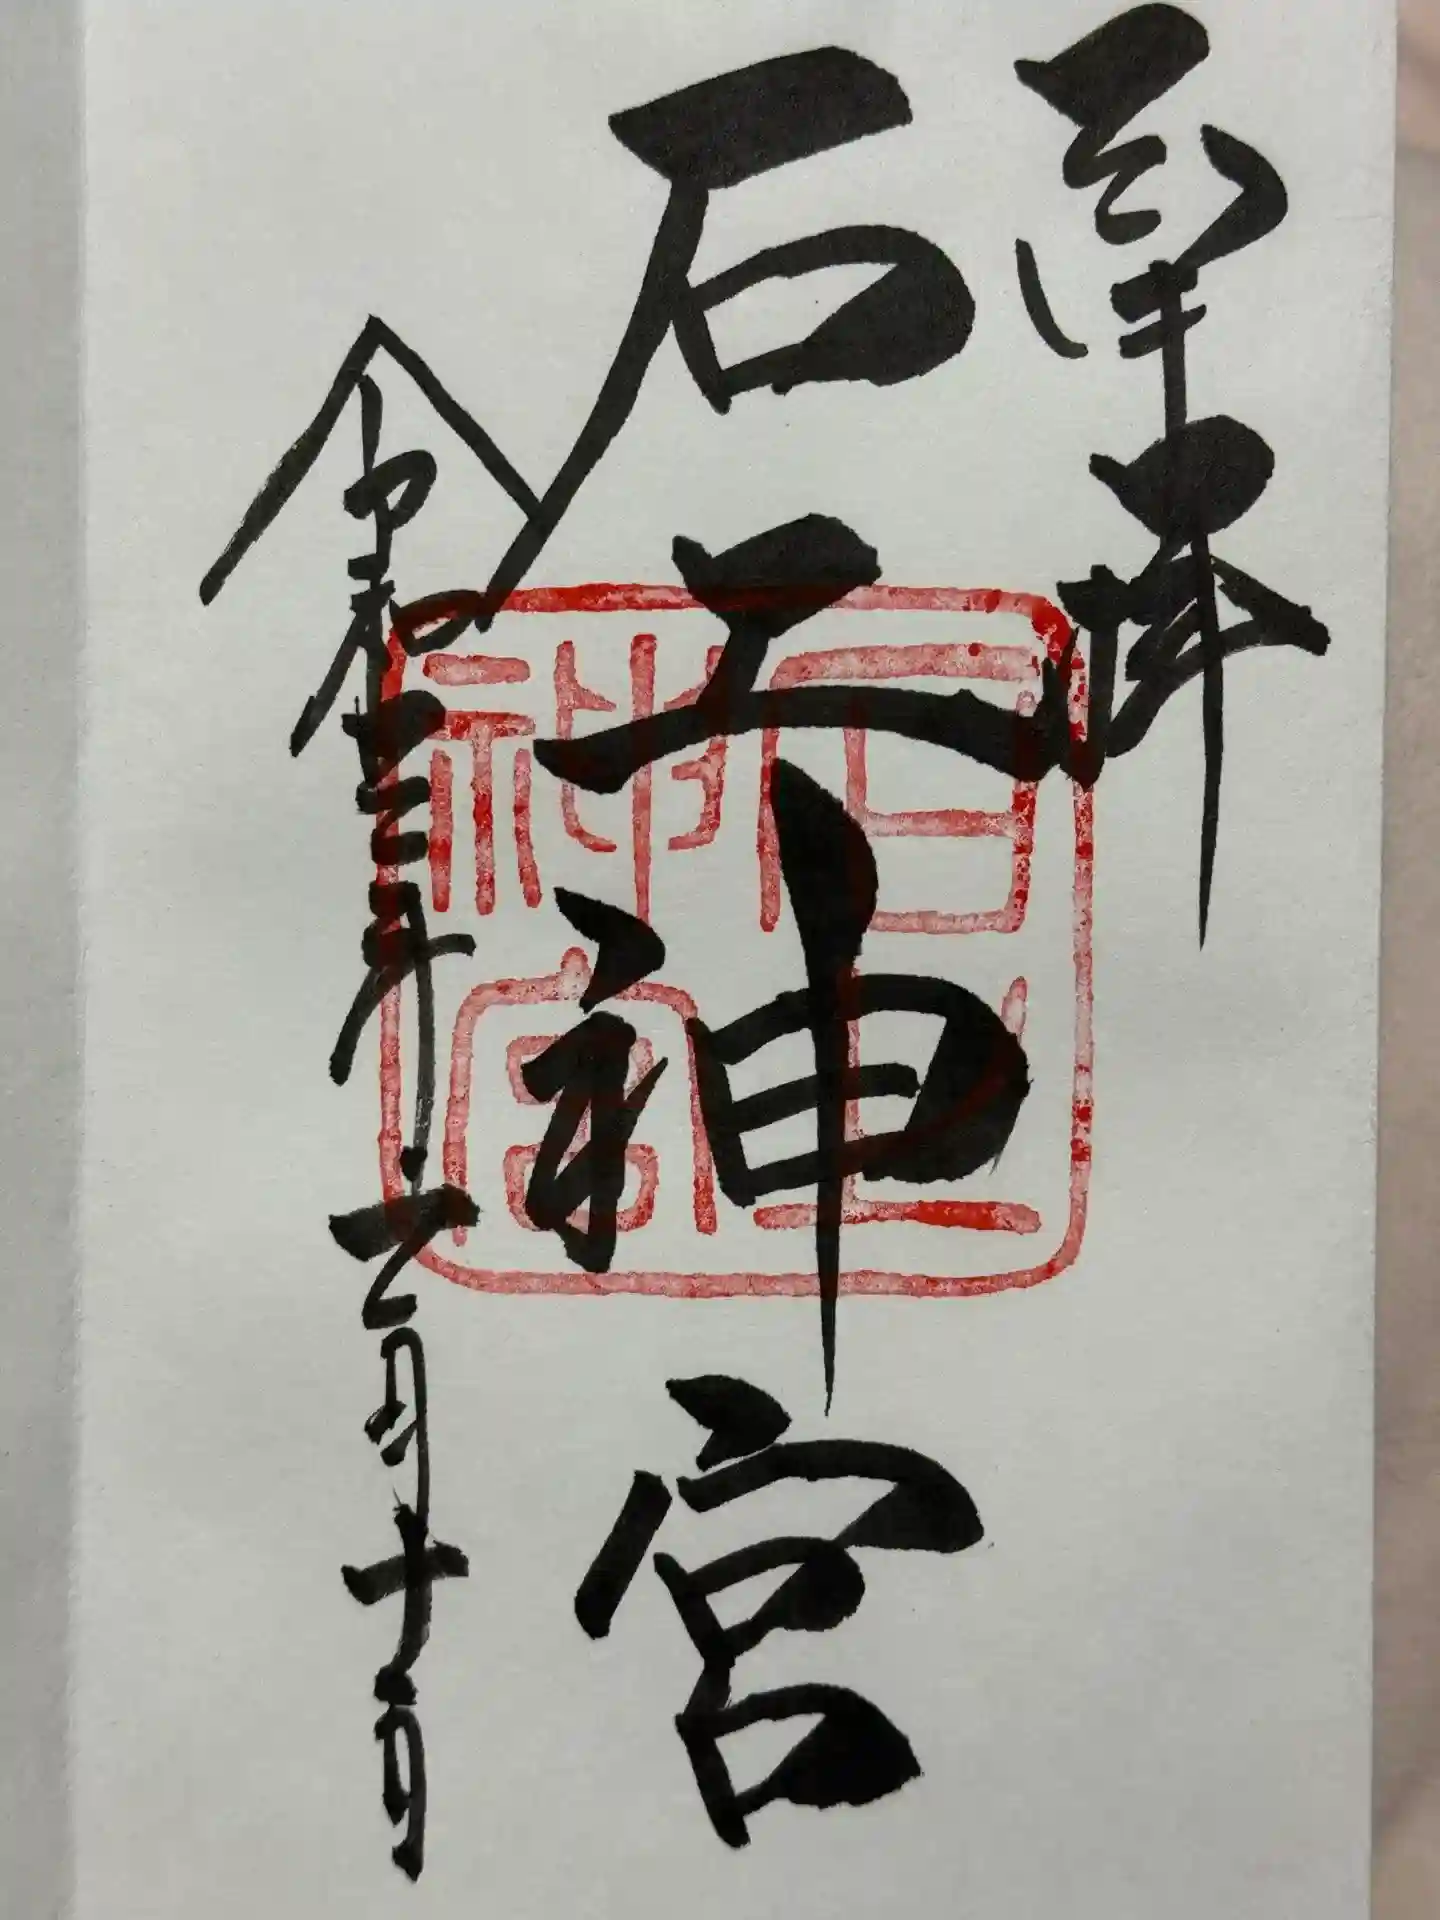 奉拝
石上神宮
令和三年六月十日
石上神宮